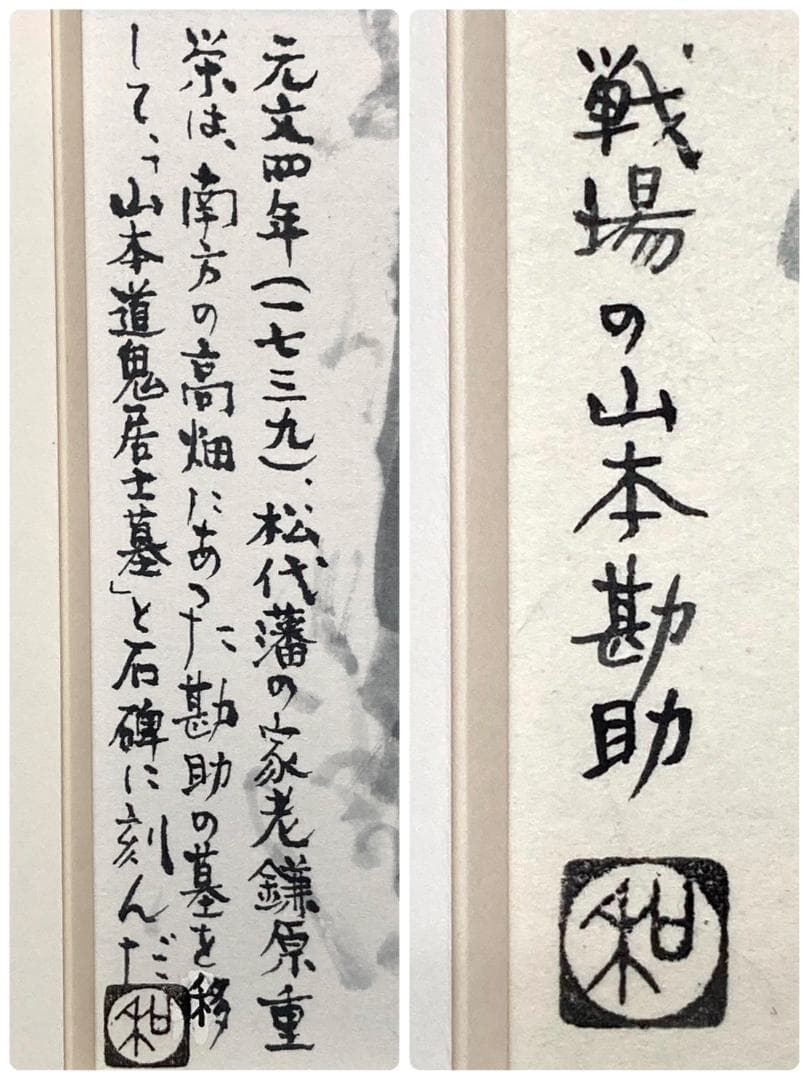 元文四年(一七三九)、松代藩の家老鎌原重
栄は、南方の高畑にあった勘助の墓を移
して、「山本道鬼居士墓」と石碑に刻んだ
和
戦場の山本勘助
和